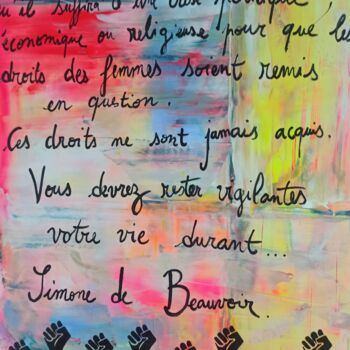 qu'il suffira d'une crise politique,
économique ou religieuse pour que les
droits des femmes soient remis
en question.
Ces droits ne sont jamais acquis.
Vous devrez rester vigilantes
votre vie durant...
Simone de Beauvoir.